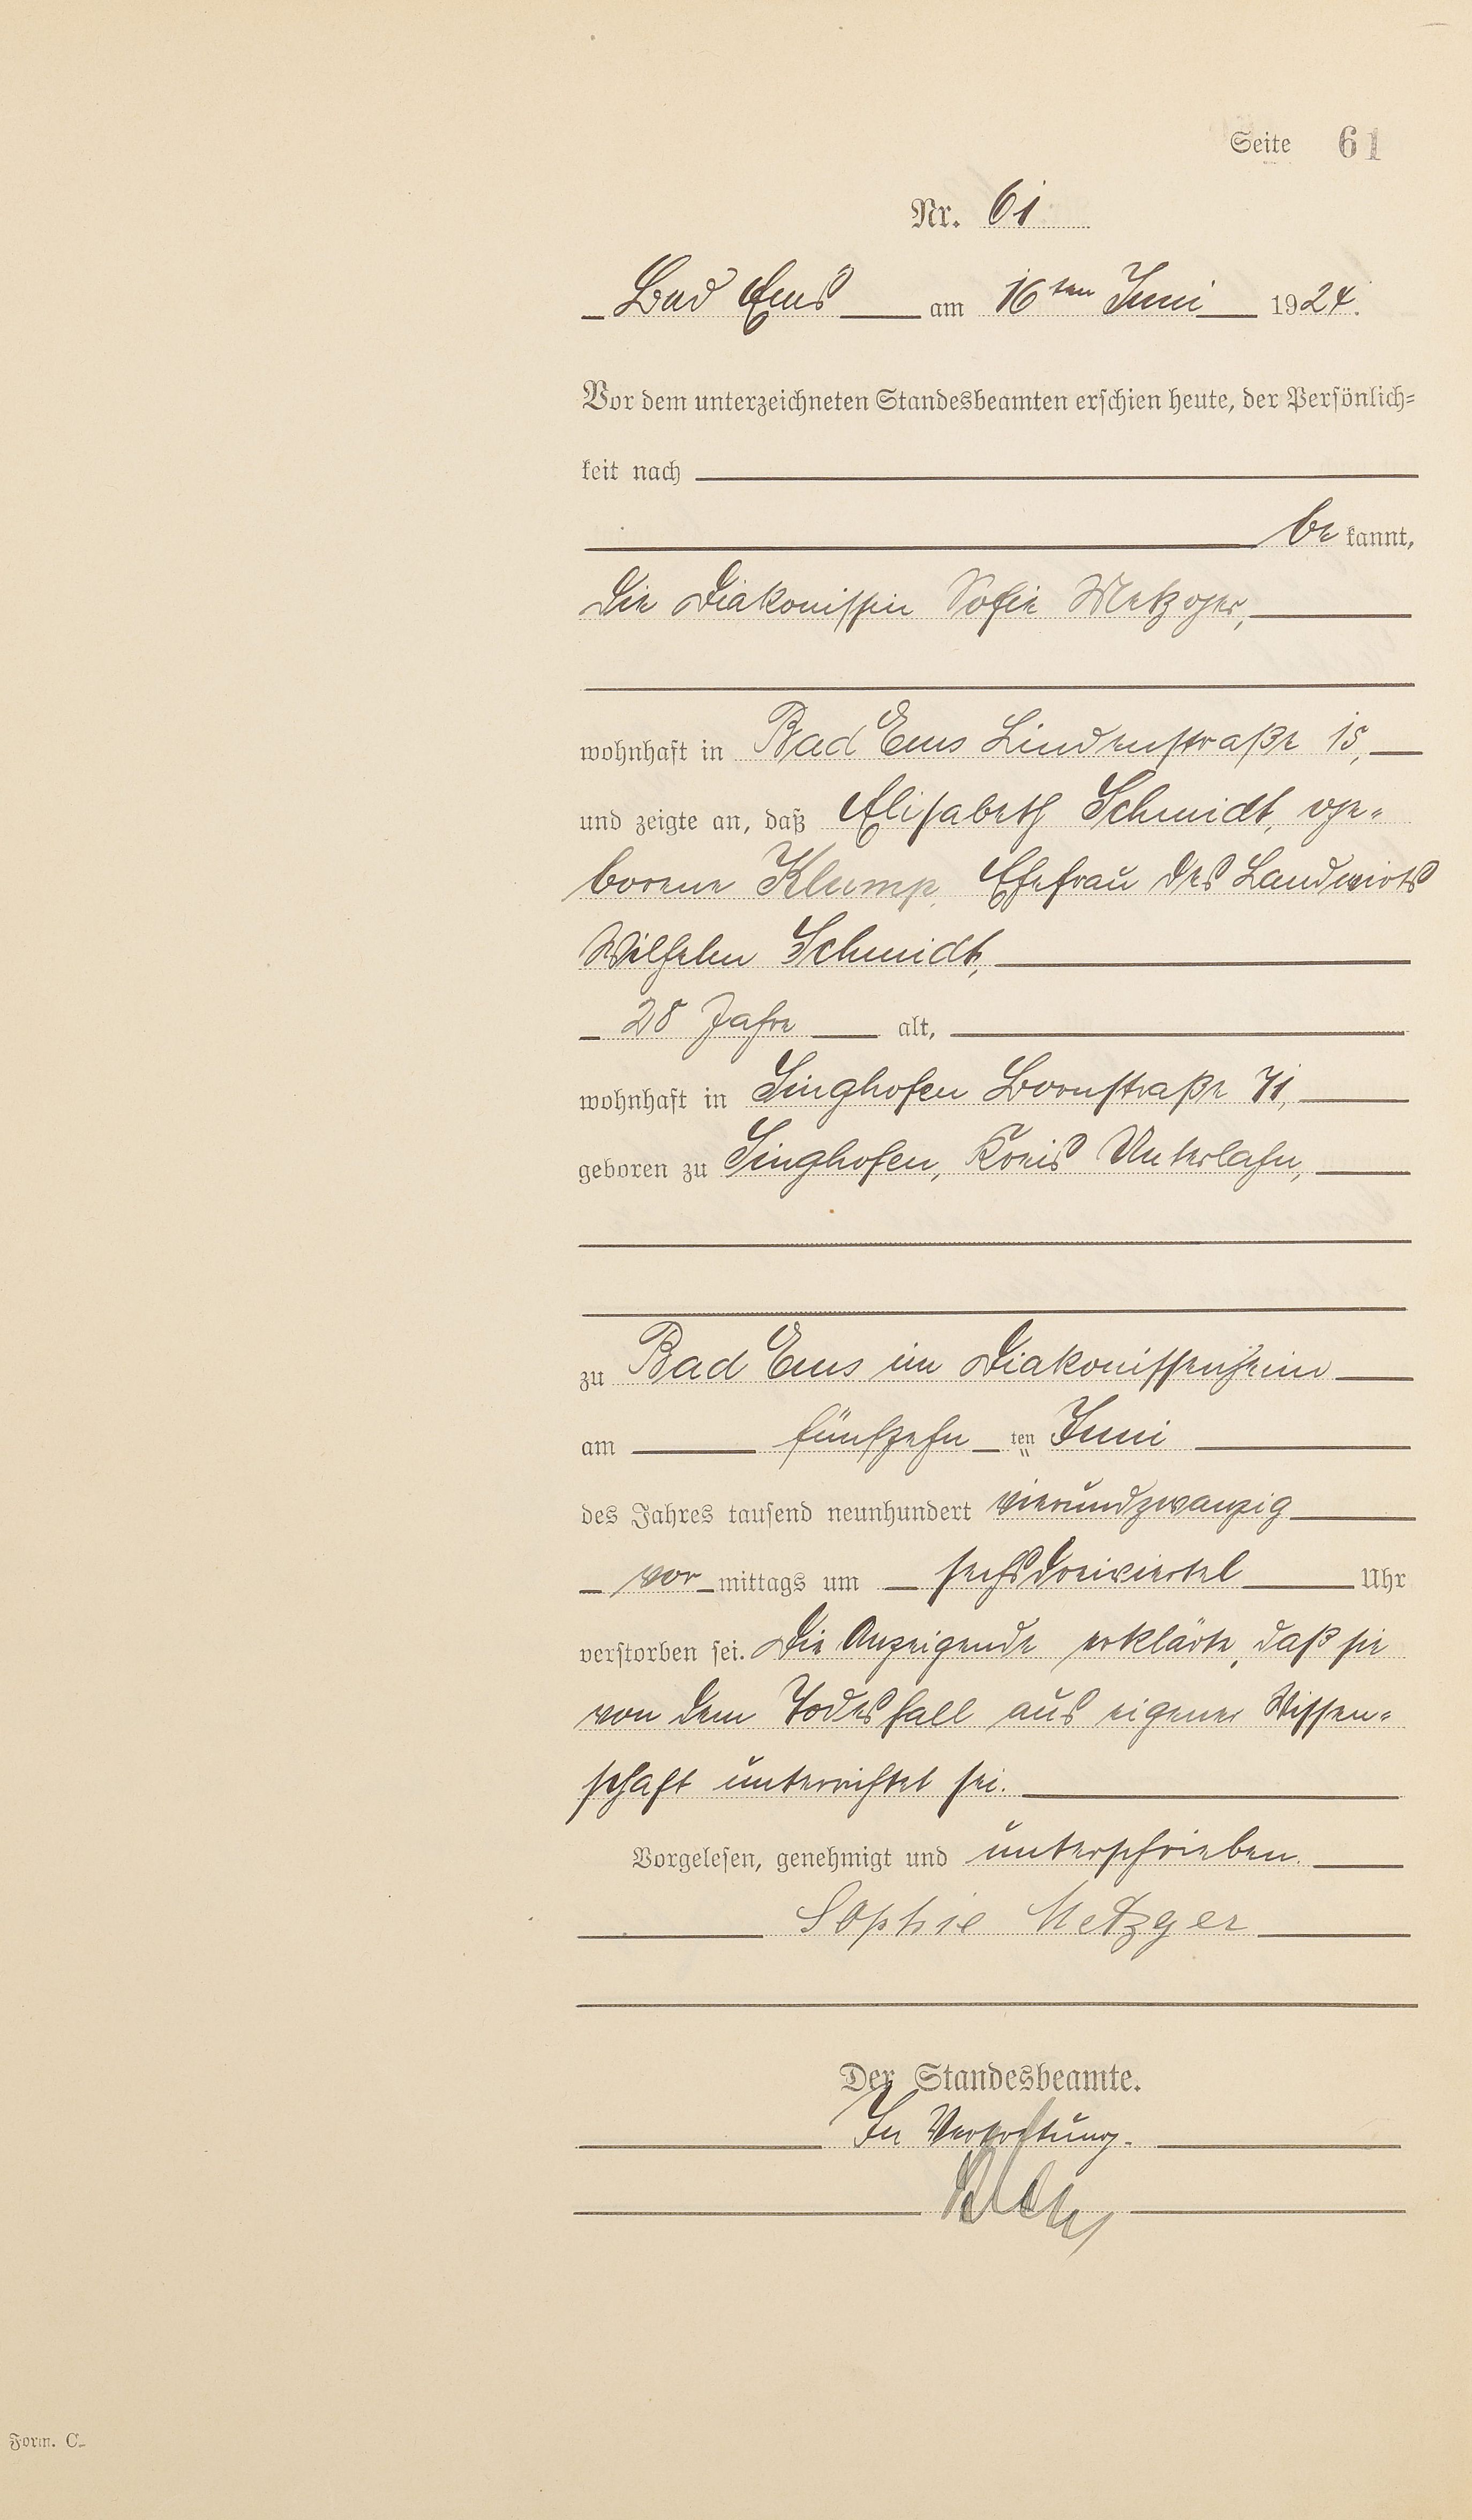 Seite 61
Nr. 61
Bad Ems am 16ten Juni 1924.
Vor dem unterzeichneten Standesbeamten erschien heute, der Persönlich=
keit nach
be kannt,
die Diakonissin Sofie Metzger,
wohnhaft in Bad Ems Lindenstraße 15,
und zeigte an, daß Elisabeth Schmidt, ge=
borene Klump, Ehefrau des Landwirts
Wilhelm Schmidt,
28 Jahre alt,
wohnhaft in Singhofen Bornstraße 71,
geboren zu Singhofen, Kreis Unterlahn,
zu Bad Ems im Diakonissenheim
am fünfzehn ten Juni
des Jahres tausend neunhundert vierundzwanzig
vor mittags um sechsdreiviertel Uhr
verstorben sei. Die Anzeigende erklärte, daß sie
von dem Todesfall aus eigener Wissen=
schaft unterrichtet sei.
Vorgelesen, genehmigt und unterschrieben.
Sophie Metzger
Der Standesbeamte.
In Vertretung.
Form. C.